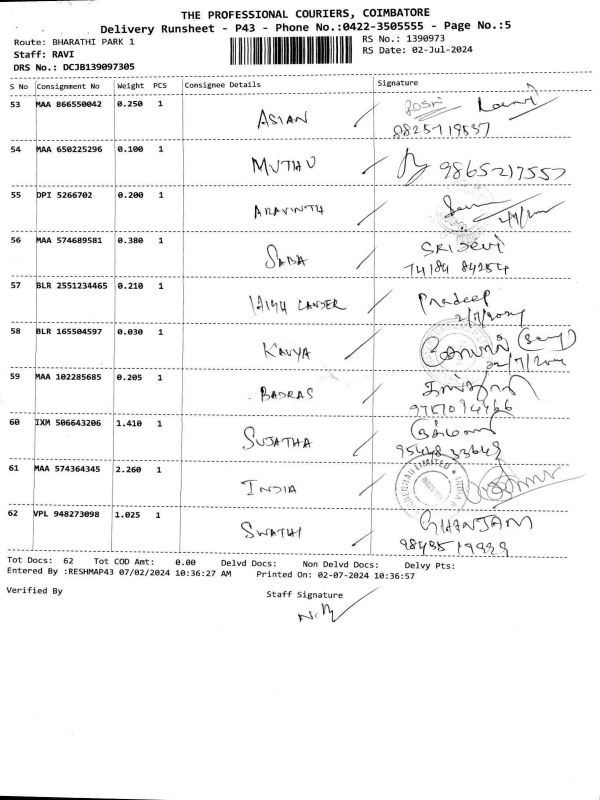 THE PROFESSIONAL COURIERS, COIMBATORE
Delivery Runsheet - P43 - Phone No.:0422-3505555 - Page No.:5
Route: BHARATHI PARK 1
RS No.: 1390973
Staff: RAVI
RS Date: 02-Jul-2024
DRS No.: DCJB139097305
S No Consignment No Weight PCS Consignee Details Signature
53 MAA 866550042 0.250 1 ASIAN
9825719537
54 MAA 650225296 0.100 1 MUTHU 9865217557
55 DPI 5266702 0.200 1 ARAVINTH
56 MAA 574689581 0.380 1 SABA SRIDEVI
74184 84254
57 BLR 2551234465 0.210 1 CANDER Pradeep
2/7/2024
58 BLR 165504597 0.030 1 KAVYA
59 MAA 102285685 0.205 1 BADRAS
60 IXM 506643206 1.410 1 SUJATHA
61 MAA 574364345 2.260 1 INDIA
62 VPL 948273098 1.025 1 SWATHI
Tot Docs: 62 Tot COD Amt: 0.00 Delvd Docs: Non Delvd Docs: Delvy Pts:
Entered By :RESHMAP43 07/02/2024 10:36:27 AM Printed On: 02-07-2024 10:36:57
Verified By Staff Signature